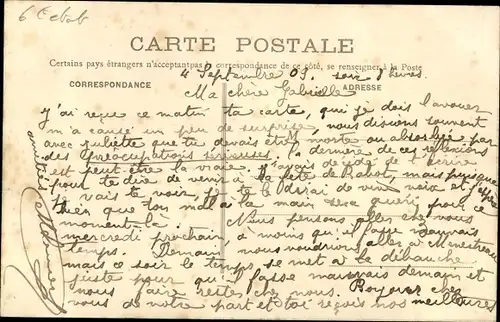 CARTE POSTALE
Certains pays étrangers n'acceptant pas la correspondance de ce côté, se renseigner à la Poste
CORRESPONDANCE
ADRESSE
4 Septembre 03. soir heures.
Ma chère Gabrielle
J'ai reçue ce matin ta carte, qui je dois l'avouer
m'a causé un peu de surprise, nous disions souvent
avec Juliette que tu devais être morte ou absorbée par
des préocupations sérieuses, la dernière de ces réflexions
est peut-être la vraie. J'avais décidé de t'écrire
pour te dire de venir à la fête de Rabot, mais puisque
vais te voir, je te dirai de vive voix et j'espère
bien que ton mal à la main sera guéri pour ce
moment là. Nous pensons aller chez vous
mercredi prochain, à moins qu'il fasse mauvais
temps. Demain nous voudrions aller à
mais ce soir le temps se met à la débauche
juste pour qu'il fasse mauvais demain et
nous faire rester chez nous. chez
vous de notre part et toi reçois nos meilleures
amitiés